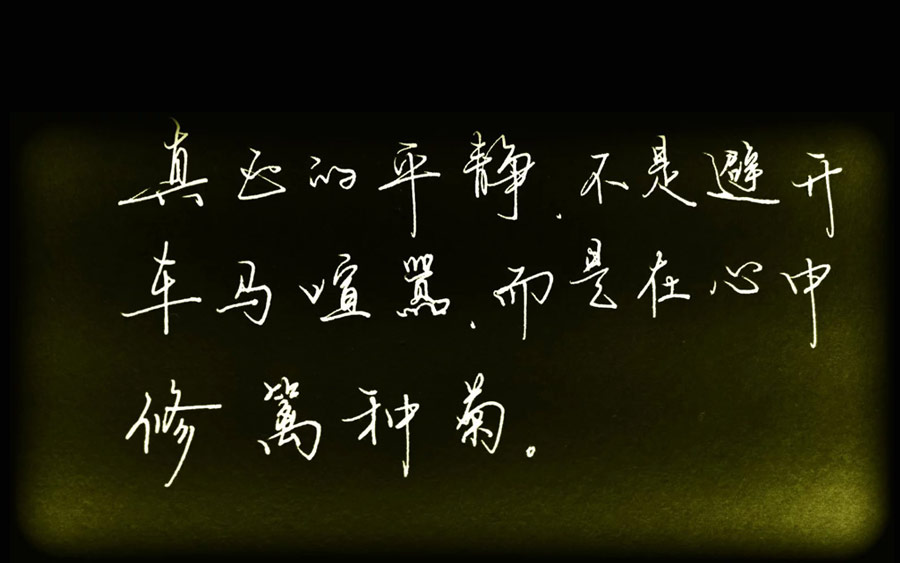 真正的平静，不是避开
车马喧嚣，而是在心中
修篱种菊。